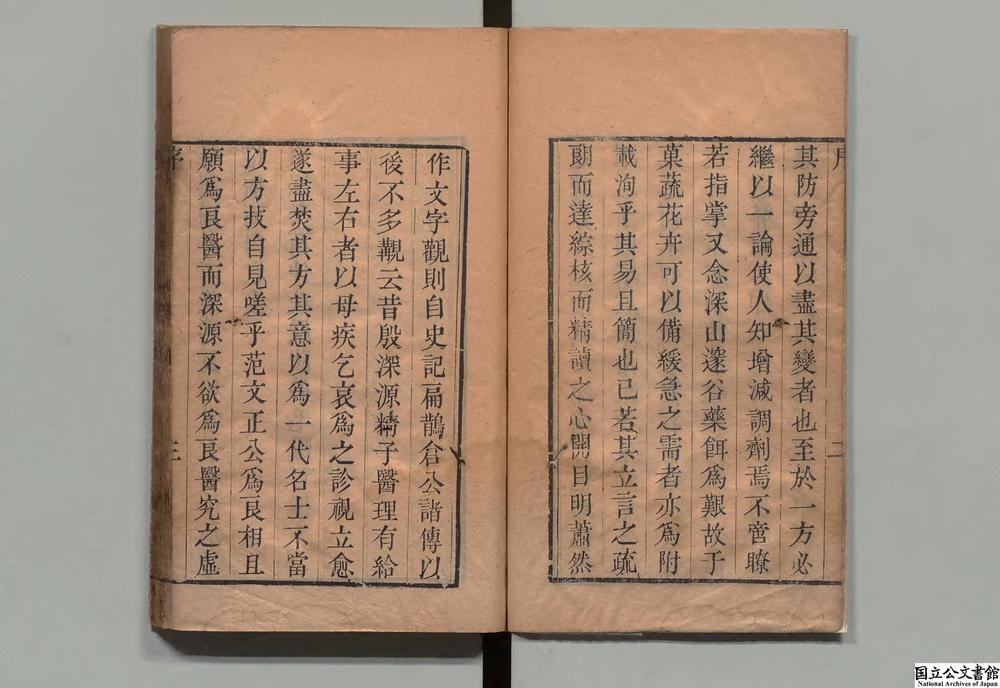 序
二
其防旁通以盡其變者也至於一方必
繼以一論使人知增減調劑焉不啻瞭
若指掌又念深山邃谷藥餌爲艱故于
菓蔬花卉可以備緩急之需者亦爲附
載洵乎其易且簡也已若其立言之疏
朗而達綜核而精讀之心開目明蕭然
作文字觀則自史記扁鵲倉公諸傳以
後不多覯云昔殷深源精于醫理有給
事左右者以母疾乞哀爲之診視立愈
遂盡焚其方其意以爲一代名士不當
以方技自見嗟乎范文正公爲良相且
願爲良醫而深源不欲爲良醫究之虛
序
三
国立公文書館
National Archives of Japan